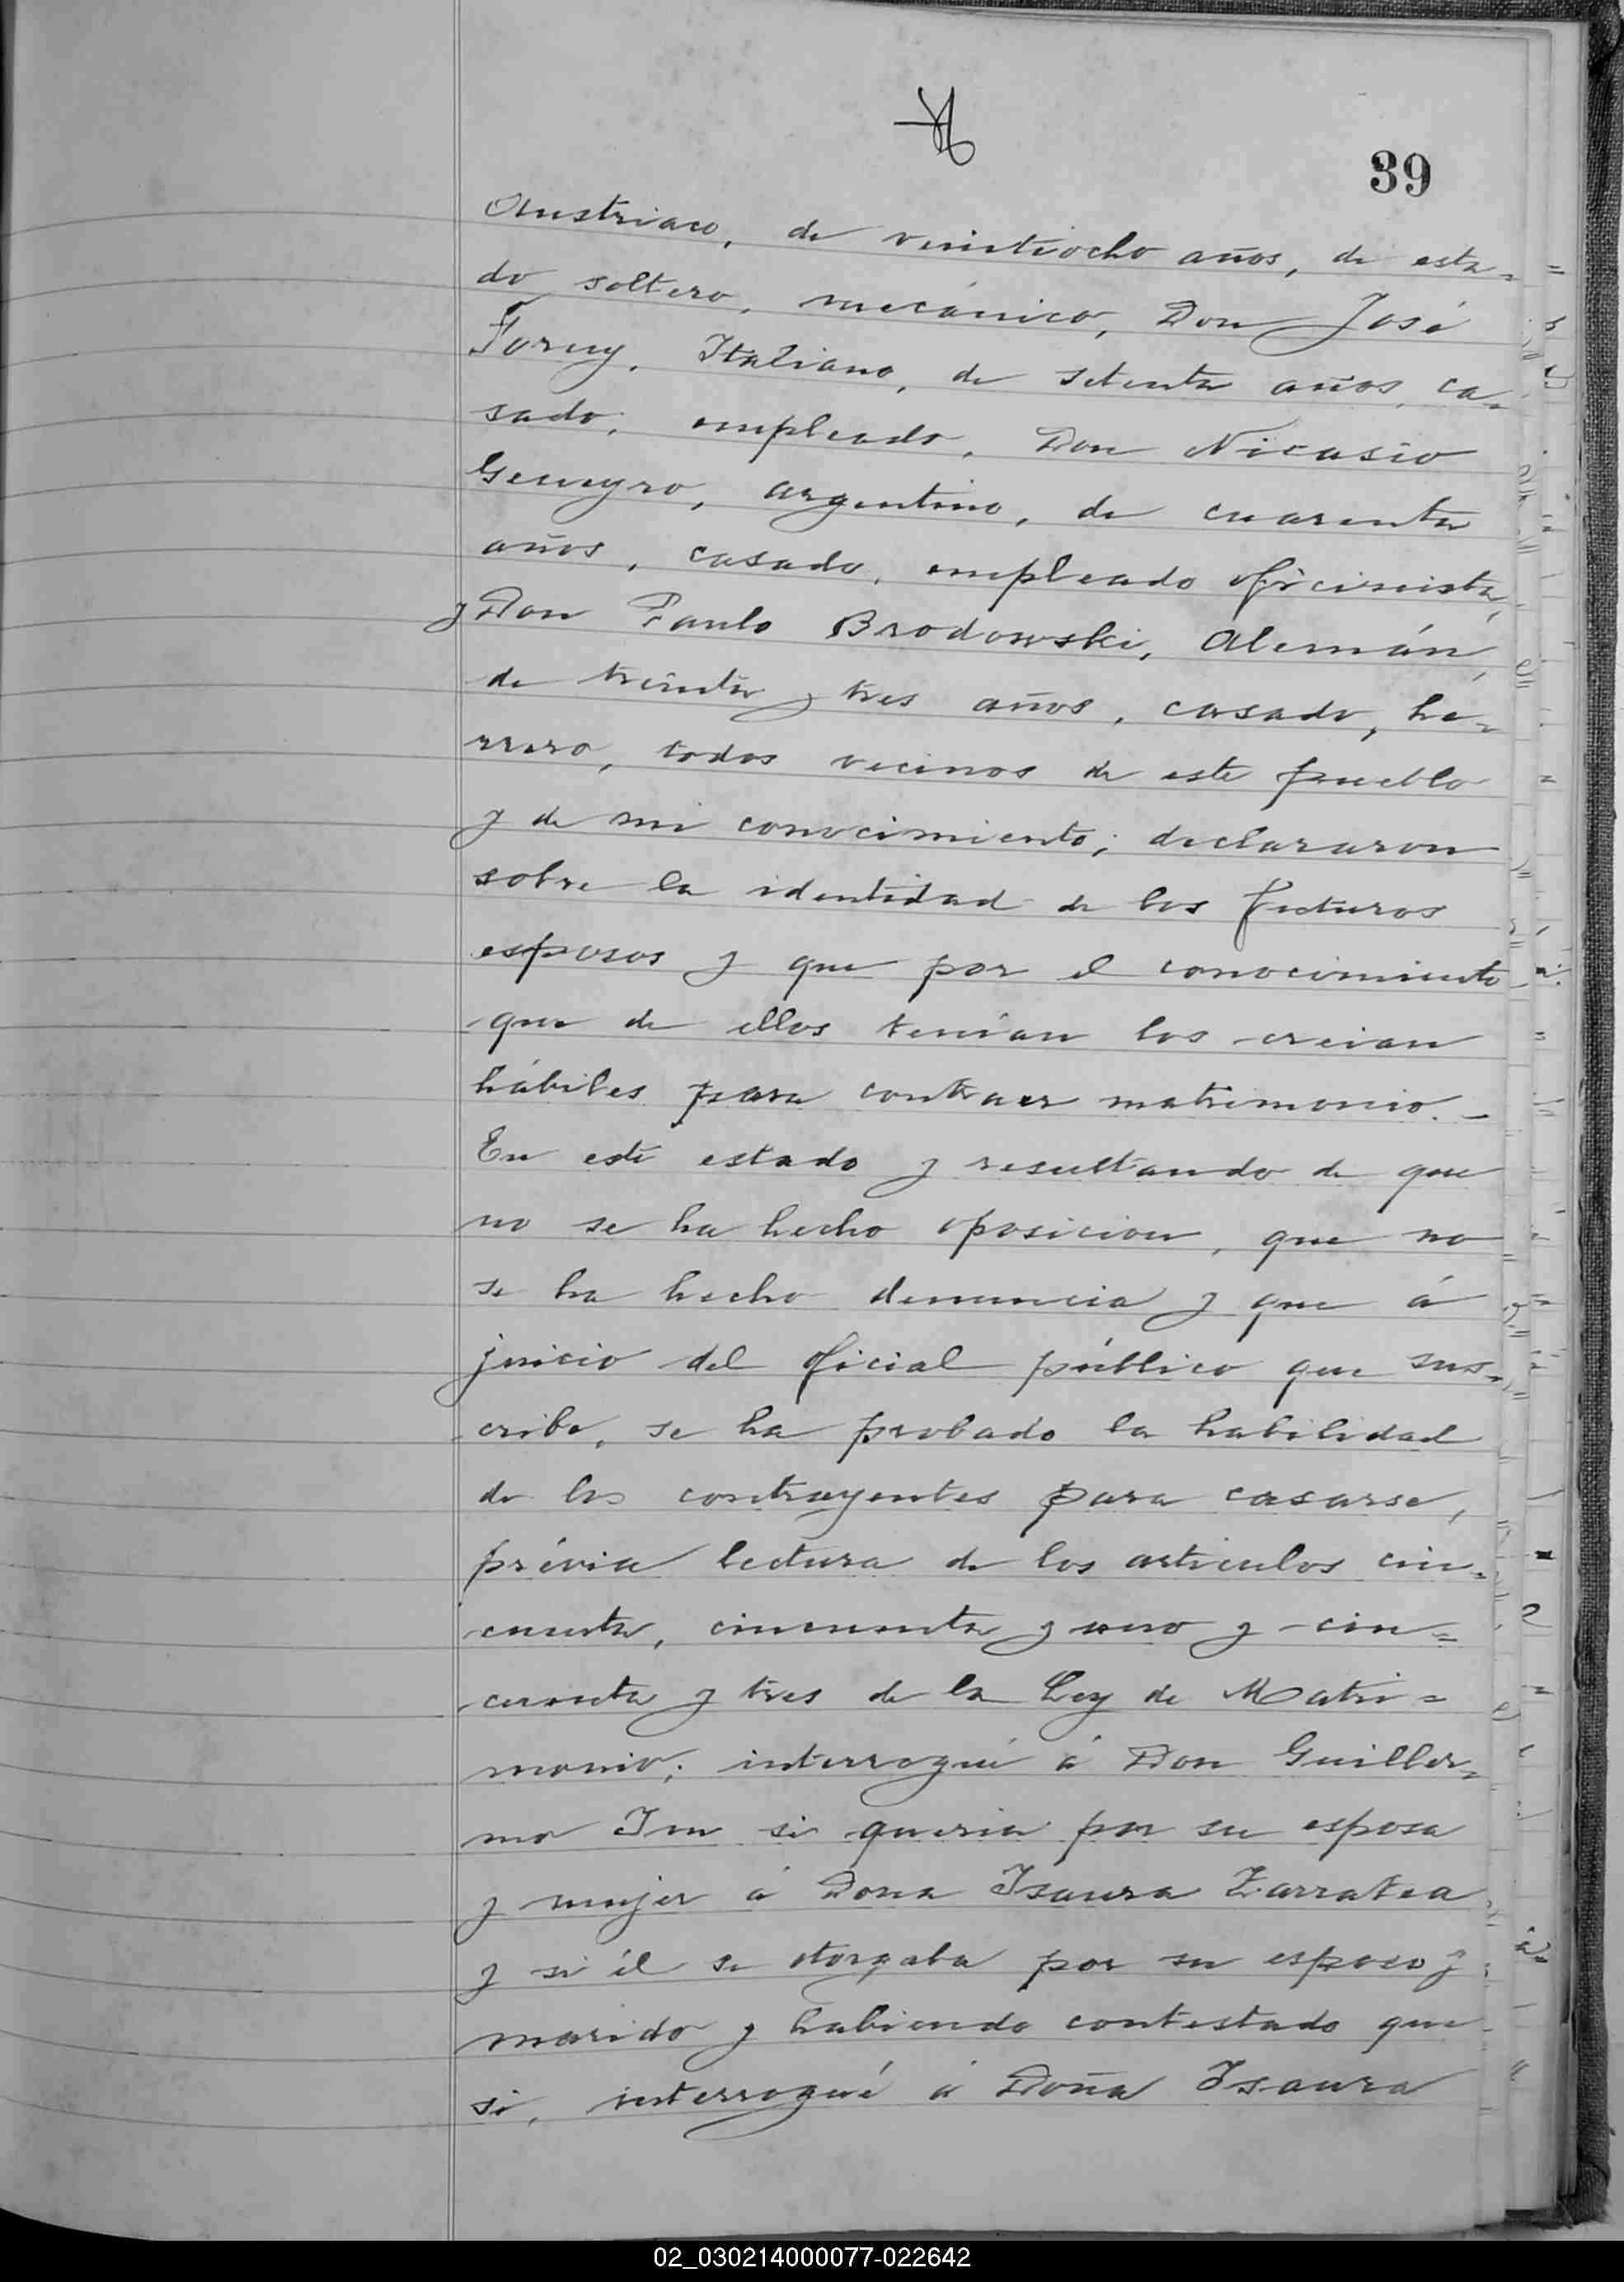 39
Austriaco, de veintiocho años, de esta=
do soltero, mecánico, Don José
Italiano, de setenta años, ca=
sado, empleado, Don Nicasio
argentino, de cuarenta
años, casado, empleado oficinista,
y Don Paulo Brodowski, Alemán,
de treinta y tres años, casado, he=
rrero, todos vecinos de este pueblo
y de mi conocimiento; declararon
sobre la identidad de los futuros
esposos y que por el conocimiento
que de ellos tenían los creian
hábiles para contraer matrimonio. -
En este estado y resultando de que
no se ha hecho oposicion, que no
se ha hecho denuncia y que á
juicio del oficial público que sus=
cribe, se ha probado la habilidad
de los contrayentes para casarse,
prévia lectura de los articulos cin=
cuenta, cincuenta y uno y cin=
cuenta y tres de la Ley de Matri=
monio; interrogué á Don Guiller=
mo si queria por su esposa
y mujer á Dona Isaura Zarratea
y si él se otorgaba por su esposo y
marido y habiendo contestado que
si, interrogué á Doña Isaura
02_030214000077-022642